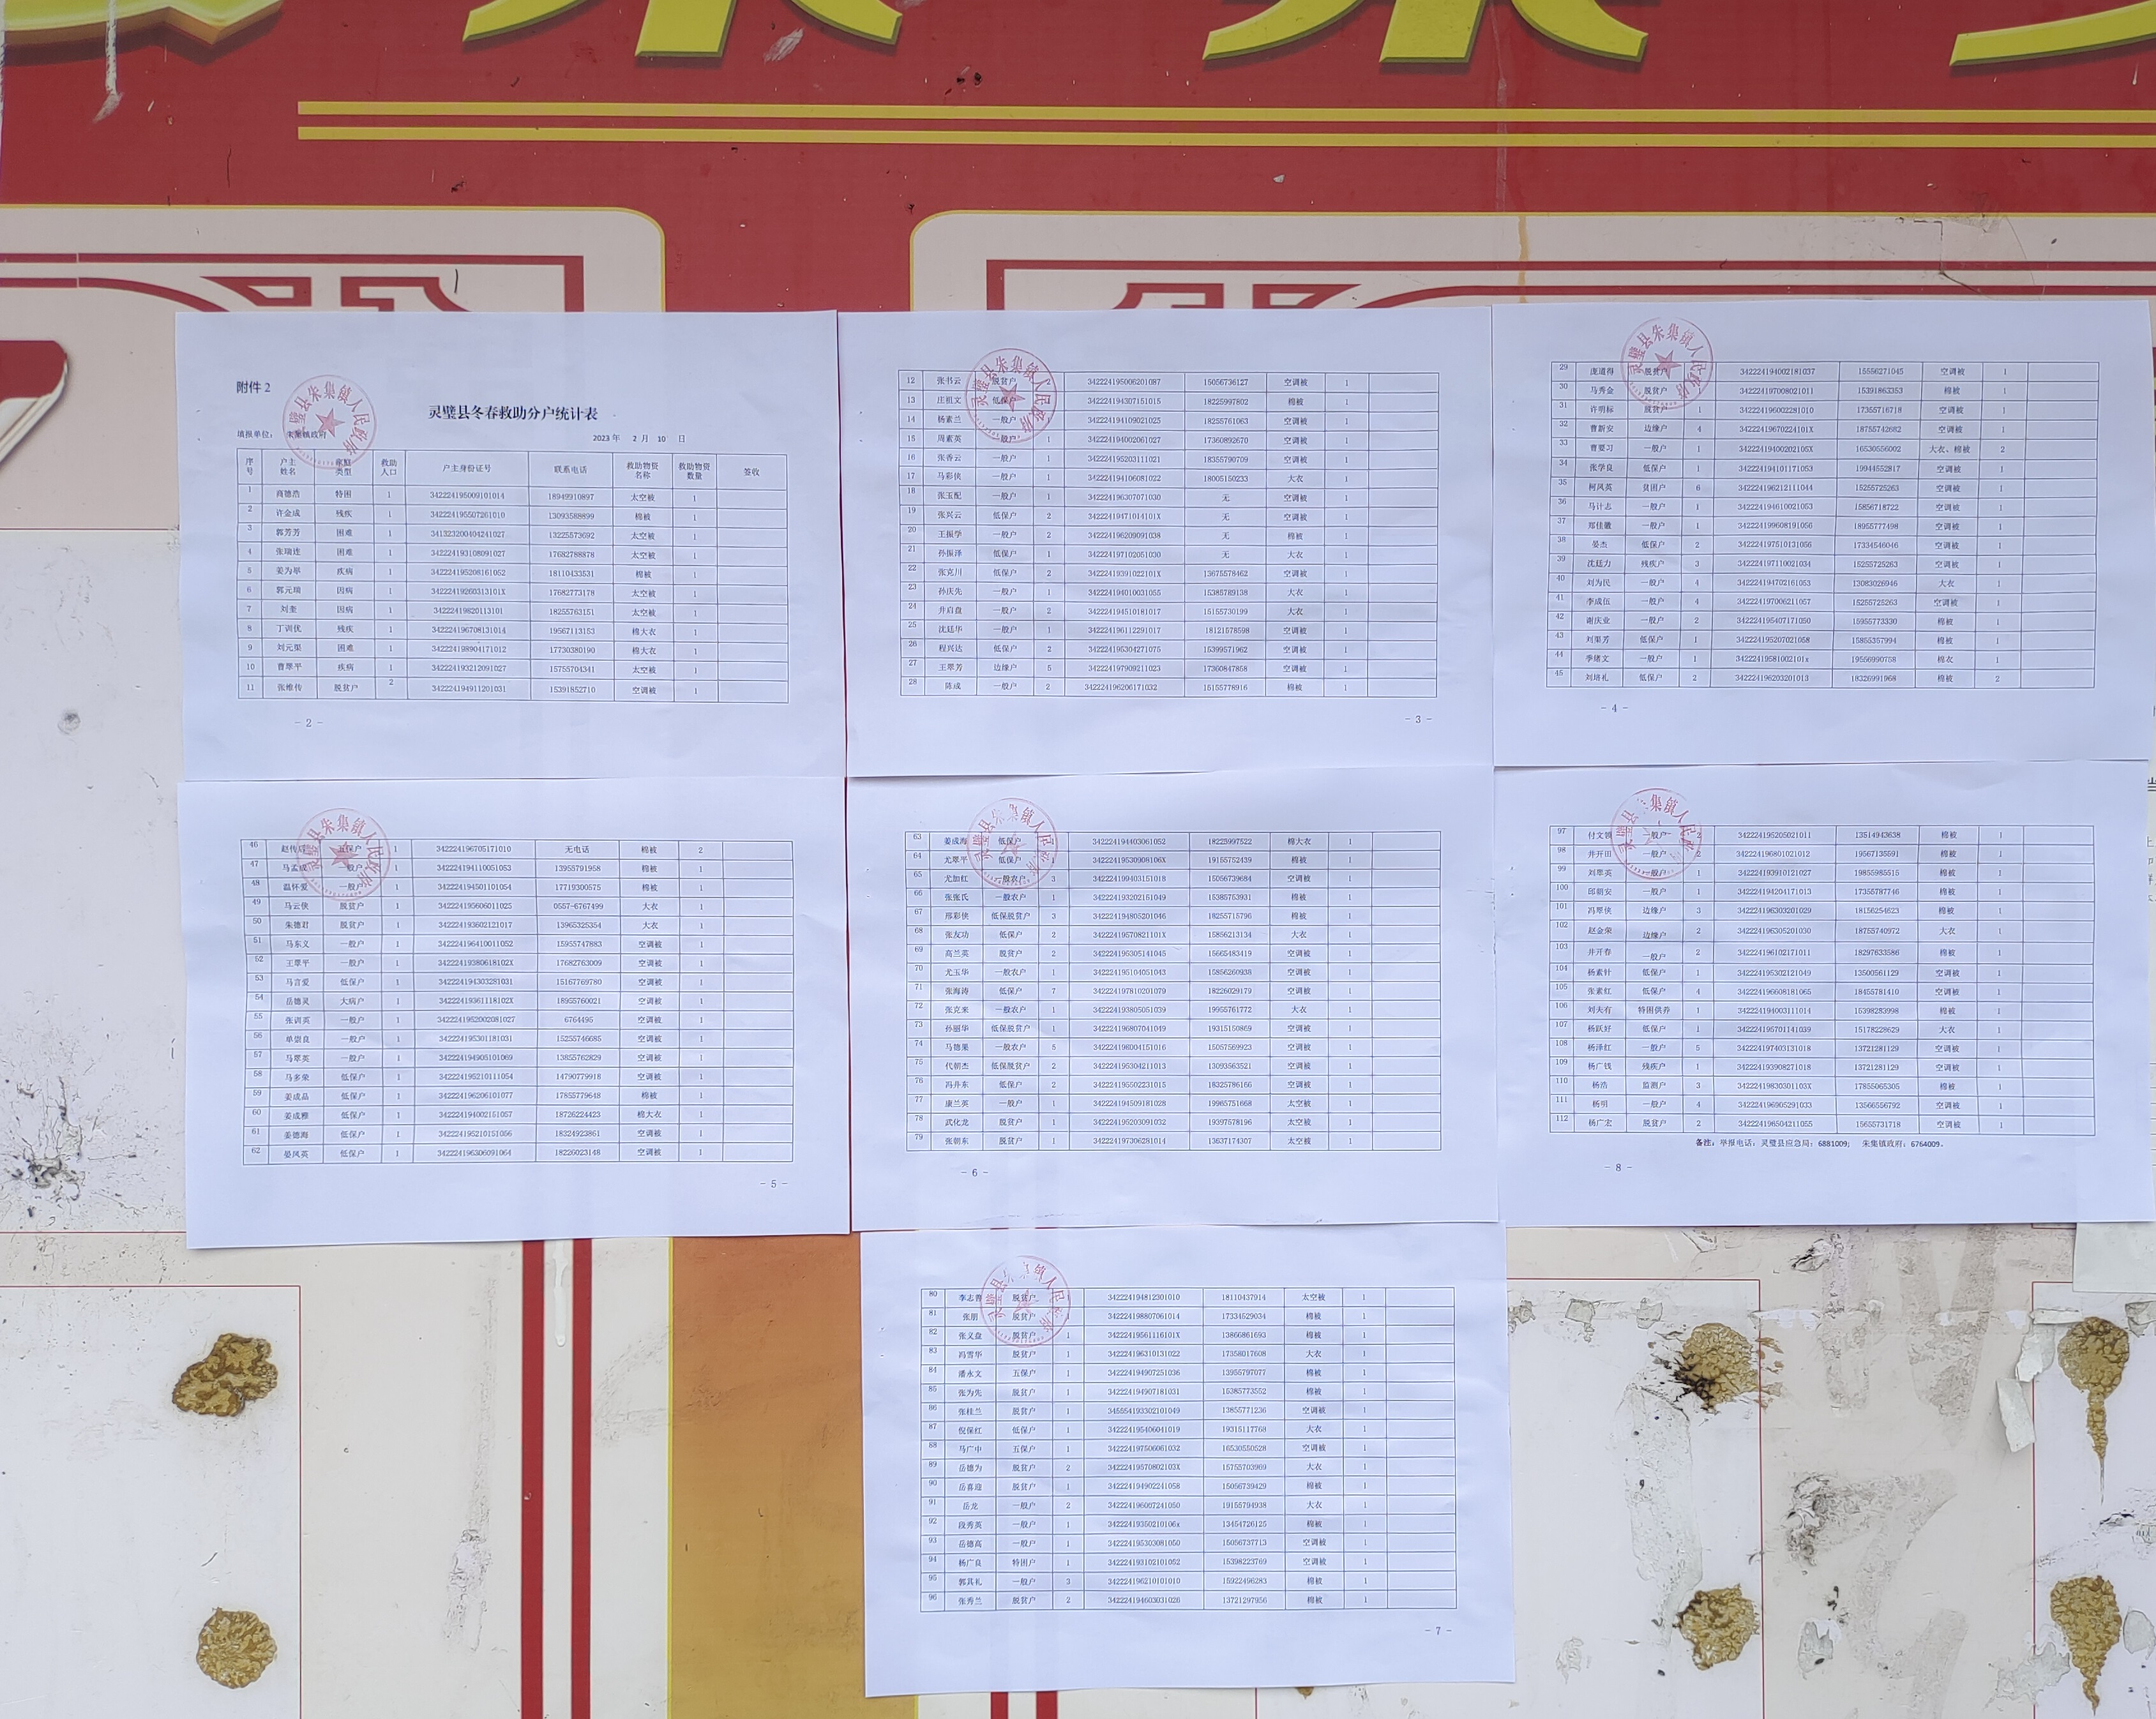 附件 2
灵璧县冬春救助分户统计表
填报单位： 朱集镇政府 2023 年 2 月 10 日
序号 户主姓名 家庭类型 救助人口 户主身份证号 联系电话 救助物资名称 救助物资数量 签收
1 商德浩 特困 1 342224195009101014 18949910897 太空被 1
2 许金成 残疾 1 342224195507261010 13093588899 棉被 1
3 郭芳芳 困难 1 341323200404241027 13225573692 太空被 1
4 张瑞连 困难 1 342224193108091027 17682788878 太空被 1
5 姜为举 疾病 1 342224195208161052 18110433531 棉被 1
6 郭元瑞 因病 1 34222419260313101X 17682773178 太空被 1
7 刘奎 因病 1 34222419820113101 18255763151 太空被 1
8 丁训优 残疾 1 342224196708131014 19567113153 棉大衣 1
9 刘元渠 困难 1 342224198904171012 17730380190 棉大衣 1
10 曹翠平 疾病 1 342224193212091027 15755704341 太空被 1
11 张维传 脱贫户 2 342224194911201031 15391852710 空调被 1
- 2 -
12 张书云 脱贫户 342224195006201087 15056736127 空调被 1
13 庄祖文 低保户 342224194307151015 18225997802 棉被 1
14 杨素兰 一般户 342224194109021025 18255761063 空调被 1
15 周素英 一般户 1 342224194002061027 17360892670 空调被 1
16 张香云 一般户 1 342224195203111021 18355790709 空调被 1
17 马彩侠 一般户 1 342224194106081022 18005150233 大衣 1
18 张玉配 一般户 1 342224196307071030 无 空调被 1
19 张兴云 低保户 2 34222419471014101X 无 空调被 1
20 王振学 一般户 2 342224196209091038 无 棉被 1
21 孙振泽 低保户 1 342224197102051030 无 大衣 1
22 张克川 低保户 2 34222419391022101X 13675578462 空调被 1
23 孙庆先 一般户 1 342224194010031055 15385789138 大衣 1
24 井启盘 一般户 2 342224194510181017 15155730199 大衣 1
25 沈廷华 一般户 1 342224196112291017 18121578598 空调被 1
26 程兴达 低保户 2 342224195304271075 15399571962 空调被 1
27 王翠芳 边缘户 5 342224197909211023 17360847858 空调被 1
28 陈成 一般户 2 342224196206171032 15155778916 棉被 1
- 3 -
29 庞道得 脱贫户 342224194002181037 15556271045 空调被 1
30 马秀金 脱贫户 342224197008021011 15391863353 棉被 1
31 许明标 脱贫户 1 342224196002281010 17355716718 空调被 1
32 曹新安 边缘户 4 34222419670224101X 18755742682 空调被 1
33 曹要习 一般户 1 34222419400202105X 16530556002 大衣、棉被 2
34 张学良 低保户 1 342224194101171053 19944552817 空调被 1
35 柯凤英 贫困户 6 342224196212111044 15255725263 空调被 1
36 马计志 一般户 1 342224194610021053 15856718722 空调被 1
37 郑佳徽 一般户 1 342224199608191056 18955777498 空调被 1
38 晏杰 低保户 2 342224197510131056 17334546046 空调被 1
39 沈廷力 残疾户 3 342224197110021034 15255725263 空调被 1
40 刘为民 一般户 4 342224194702161053 13083026946 大衣 1
41 李成伍 一般户 4 342224197006211057 15255725263 空调被 1
42 谢庆业 一般户 2 342224195407171050 15955773330 棉被 1
43 刘渠芳 低保户 1 342224195207021058 15855357994 棉被 1
44 季绪文 一般户 1 34222419581002101x 19556990758 棉衣 1
45 刘培礼 低保户 2 342224196203201013 18326991968 棉被 2
- 4 -
46 赵传 五保户 1 342224196705171010 无电话 棉被 2
47 马孟成 一般户 1 342224194110051053 13955791958 棉被 1
48 温怀爱 一般户 1 342224194501101054 17719300575 棉被 1
49 马云侠 脱贫户 1 342224195606011025 0557-6767499 大衣 1
50 朱德君 脱贫户 1 342224193602121017 13965325354 大衣 1
51 马东义 一般户 1 342224196410011052 15955747883 空调被 1
52 王翠平 一般户 1 34222419380618102X 17682763009 空调被 1
53 马言爱 低保户 1 342224194303281031 15167769780 空调被 1
54 岳德灵 大病户 1 34222419361118102X 18955760021 空调被 1
55 张训英 一般户 1 3422241952002081027 6764495 空调被 1
56 单崇良 一般户 1 342224195301181031 15255746685 空调被 1
57 马翠英 一般户 1 342224194905101069 13855762829 空调被 1
58 马多荣 低保户 1 342224195210111054 14790779918 空调被 1
59 姜成品 低保户 1 342224196206101077 17855779648 棉被 1
60 姜成雅 低保户 1 342224194002151057 18726224423 棉大衣 1
61 姜德海 低保户 1 342224195210151056 18324923861 空调被 1
62 晏凤英 低保户 1 342224196306091064 18226023148 空调被 1
- 5 -
63 姜成海 低保户 342224194403061052 18225997522 棉大衣 1
64 尤翠平 低保户 34222419530908106X 19155752439 棉被 1
65 尤加红 一般农户 3 342224199403151018 15056739684 空调被 1
66 张张氏 一般农户 1 342224193202151049 15385753931 棉被 1
67 邢彩侠 低保脱贫户 3 342224194805201046 18255715796 棉被 1
68 张友功 低保户 2 34222419570821101X 15856213134 大衣 1
69 高兰英 脱贫户 2 342224195305141045 15665483419 空调被 1
70 尤玉华 一般农户 1 342224195104051043 15856260938 空调被 1
71 张海涛 低保户 7 342224197810201079 18226029179 空调被 1
72 张克来 一般农户 1 342224193805051039 19955761772 大衣 1
73 孙丽华 低保脱贫户 1 342224196807041049 19315150869 空调被 1
74 马德渠 一般农户 5 342224198004151016 15057569923 空调被 1
75 代朝杰 低保脱贫户 2 342224195304211013 13093563521 空调被 1
76 冯井东 低保户 2 342224195502231015 18325786166 空调被 1
77 康兰英 一般户 1 342224194509181028 19965751668 太空被 1
78 武化龙 脱贫户 1 342224195203091032 19397578196 太空被 1
79 张朝东 脱贫户 1 342224197306281014 13637174307 太空被 1
- 6 -
97 付文领 一般户 2 342224195205021011 13514943638 棉被 1
98 井开田 一般户 2 342224196801021012 19567135591 棉被 1
99 刘翠英 一般户 1 342224193910121027 19855985515 棉被 1
100 邱朝安 一般户 1 342224194204171013 17355787746 棉被 1
101 冯翠侠 边缘户 3 342224196303201029 18156254623 棉被 1
102 赵金荣 边缘户 2 342224196305201030 18755740972 大衣 1
103 井开春 一般户 2 342224196102171011 18297633586 棉被 1
104 杨素针 低保户 1 342224195302121049 13500561129 空调被 1
105 张素红 低保户 4 342224196608181065 18455781410 空调被 1
106 刘夫有 特困供养 1 342224194003111014 15398283998 棉被 1
107 杨跃好 低保户 1 342224195701141039 15178228629 大衣 1
108 杨泽红 一般户 5 342224197403131018 13721281129 空调被 1
109 杨广钱 残疾户 1 342224193908271018 13721281129 空调被 1
110 杨浩 监测户 3 34222419830301103X 17855065305 棉被 1
111 杨明 一般户 4 342224196905291033 13566556792 空调被 1
112 杨广宏 脱贫户 2 342224196504211055 15655731718 空调被 1
备注：举报电话：灵璧县应急局：6881009; 朱集镇政府：6764009.
- 8 -
80 李志善 脱贫户 342224194812301010 18110437914 太空被 1
81 张朋 脱贫户 342224198807061014 17334529034 棉被 1
82 张义盘 脱贫户 1 34222419561116101X 13866861693 棉被 1
83 冯雪华 脱贫户 1 342224196310131022 17358017608 大衣 1
84 潘永文 五保户 1 342224194907251036 13955797077 棉被 1
85 张为先 脱贫户 1 342224194907181031 15385773552 棉被 1
86 张桂兰 脱贫户 1 345554193302101049 13855771236 空调被 1
87 倪保红 低保户 1 342224195406041019 19315117768 大衣 1
88 马广中 五保户 1 342224197506061032 16530550528 空调被 1
89 岳德为 脱贫户 2 34222419570802103X 15755703969 大衣 1
90 岳喜迎 脱贫户 1 342224194902241058 15056739429 棉被 1
91 岳龙 一般户 2 342224196087241050 19155794938 大衣 1
92 段秀英 一般户 1 34222419350210106x 13454726125 棉被 1
93 岳德高 一般户 1 342224195303081050 15056737713 空调被 1
94 杨广良 特困户 1 342224193102101052 15398223769 空调被 1
95 郭其礼 一般户 3 342224196210101010 15922496283 棉被 1
96 张秀兰 脱贫户 2 342224194603031026 13721297956 棉被 1
- 7 -
灵璧县朱集镇人民政府